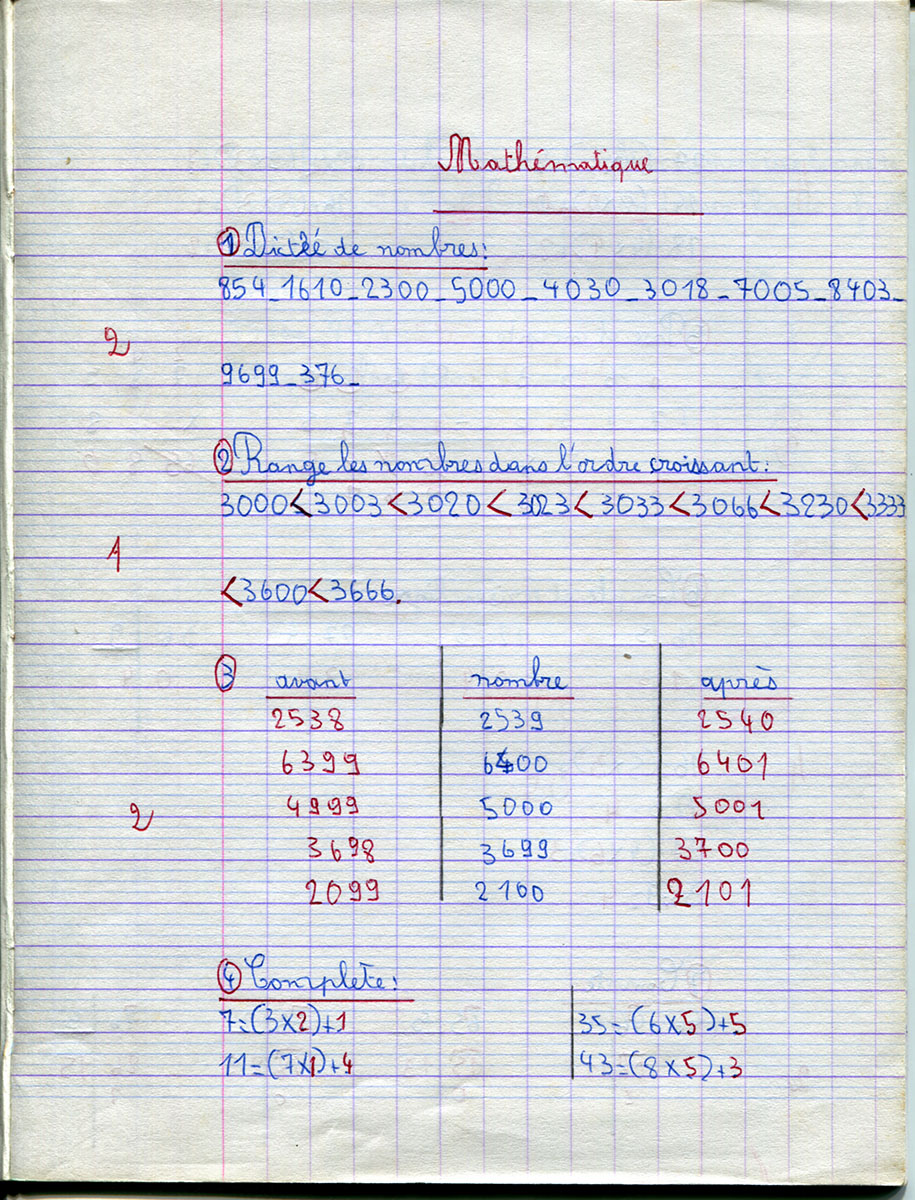 Mathématique
1 Dictéé de nombres:
854_1610_2300_5000_4030_3018_7005_8403_
2
9699_376_
2 Range les nombres dans l'ordre croissant:
3000<3003<3020<3023<3033<3066<3230<3333
1
<3600<3666.
3 avant nombre après
2538 2539 2540
6399 6400 6401
4999 5000 5001
2
3698 3699 3700
2099 2100 2101
4 Complete:
7=(3x2)+1 35=(6x5)+5
11=(7x1)+4 43=(8x5)+3